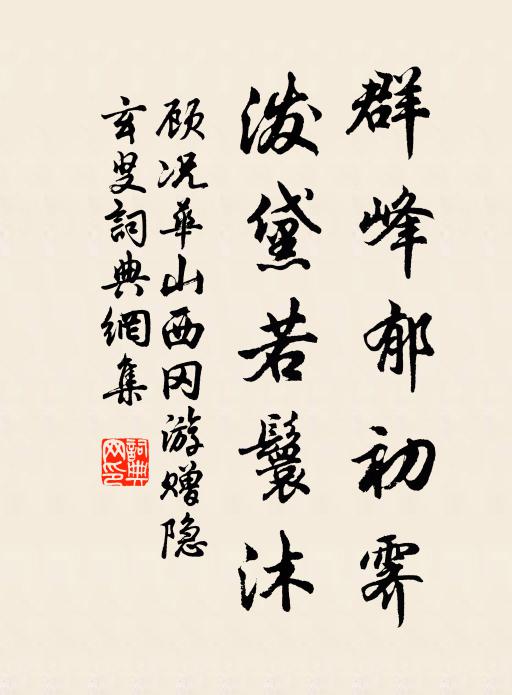 群峰郁初霁
泼黛若鬟沐
顾况華山西冈游赠隐
玄叟詞典網集
詞典网印